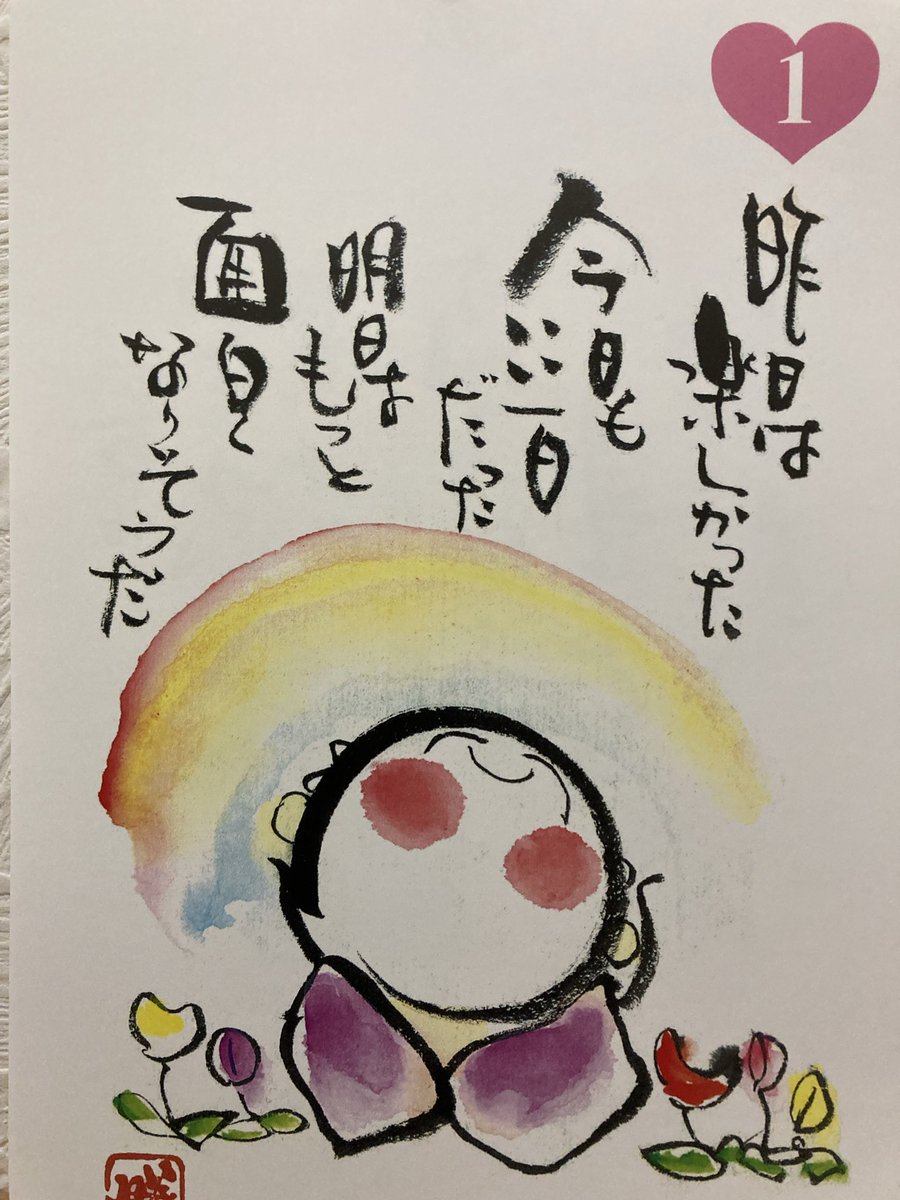 1
昨日は
楽しかった
今日も
いい一日
だった
明日は
もっと
面白く
なりそうだ